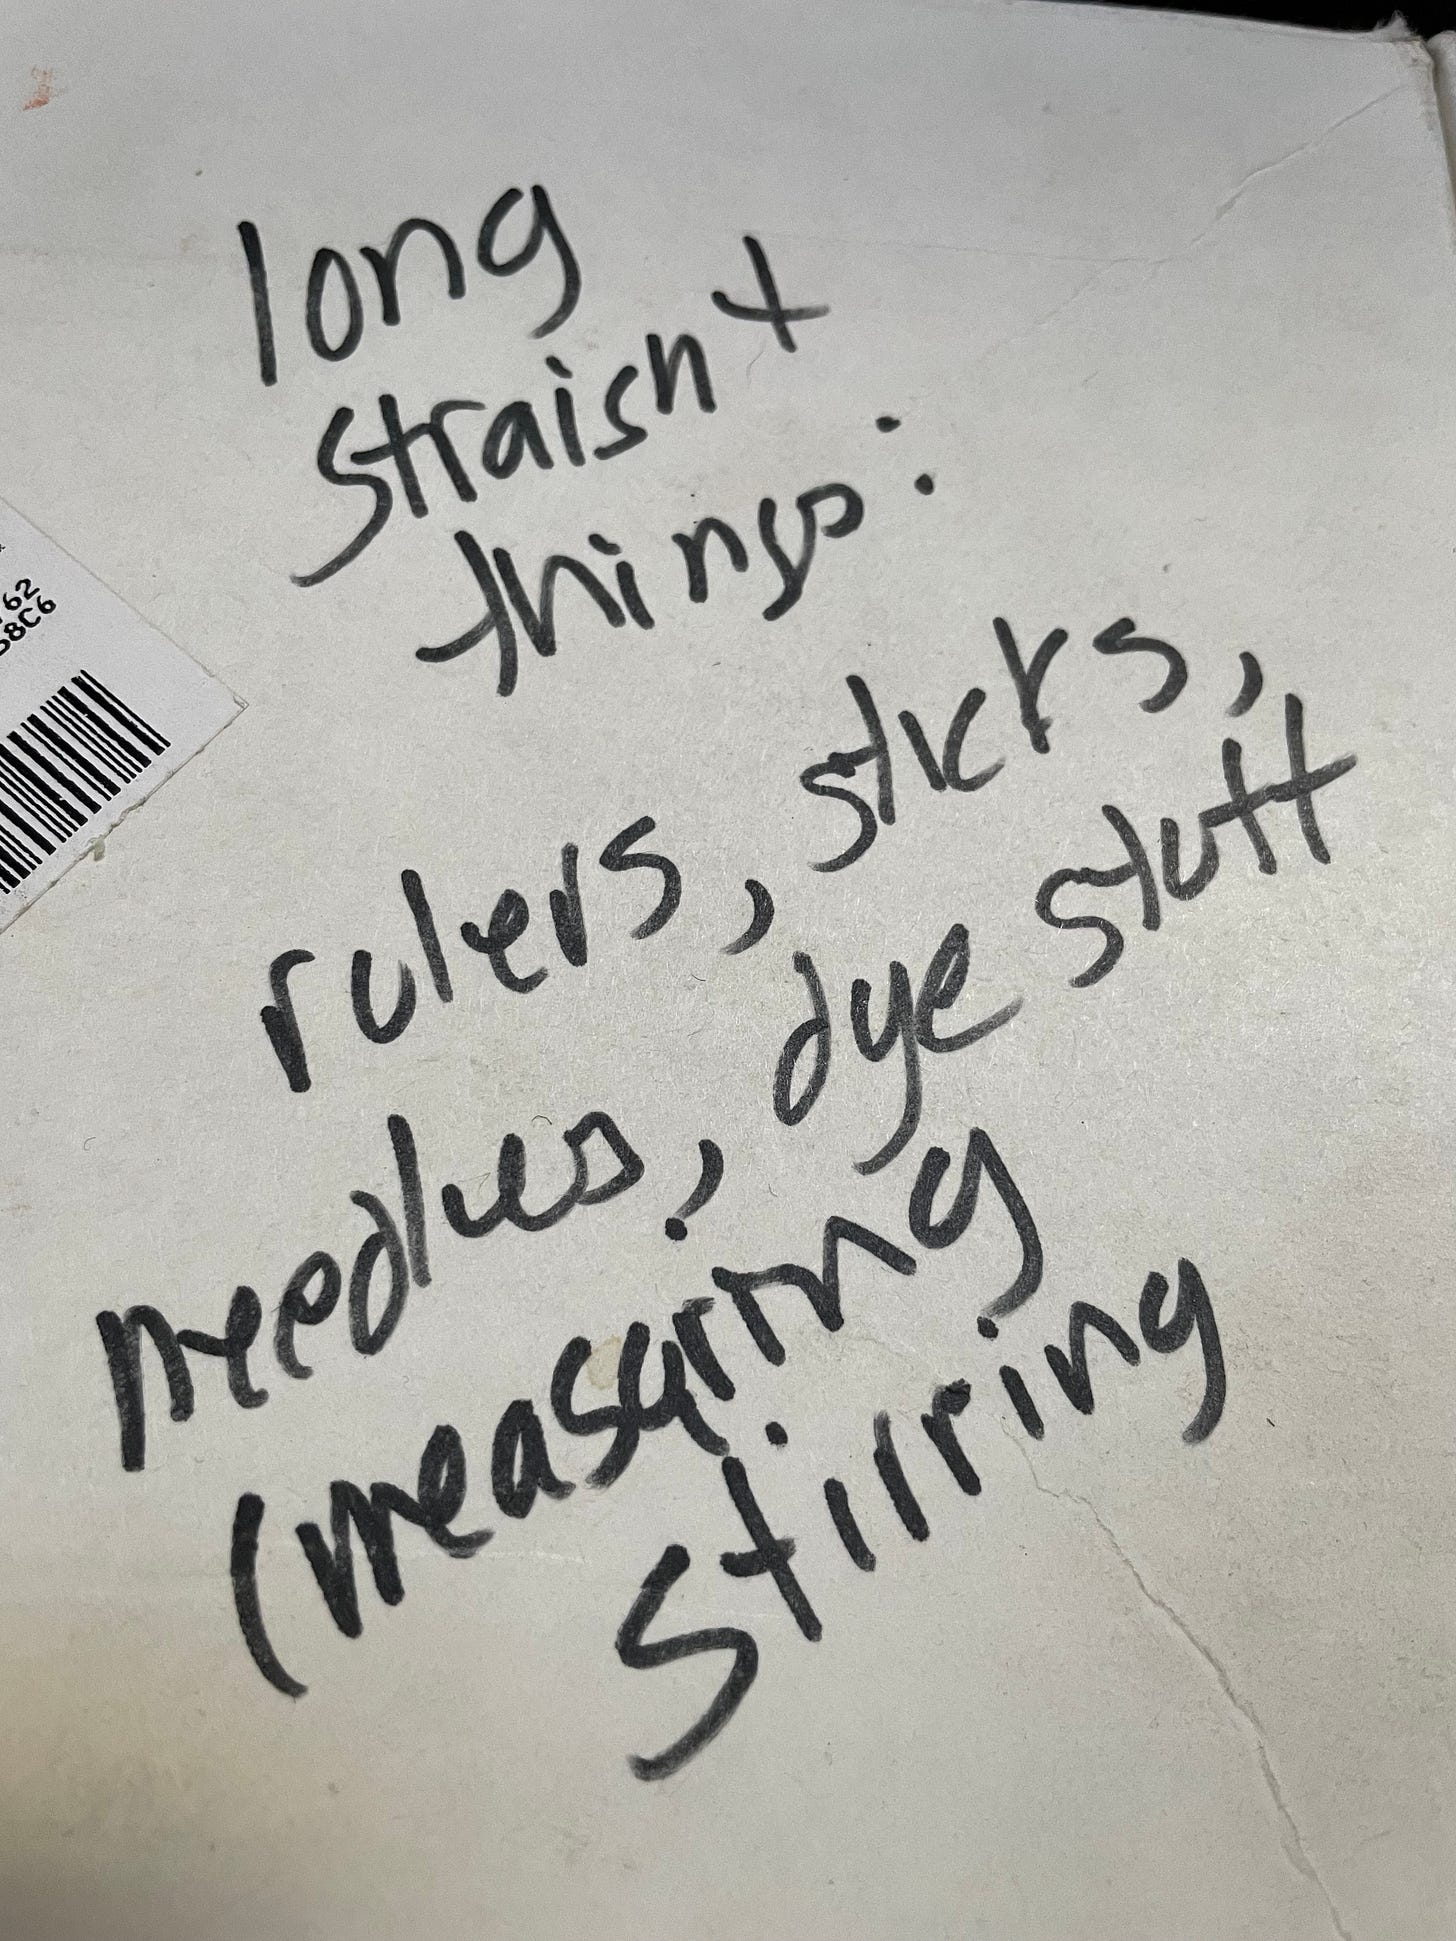 long
straight
things:
rulers, sticks,
needles, dye stuff
(measuring
stirring
62
58C6